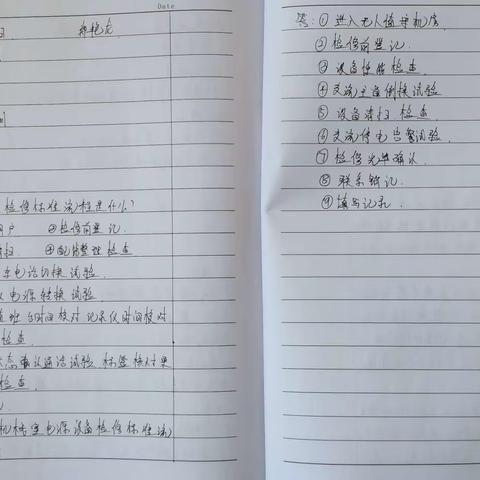 Date
检修标准流程是什么?
户 ②检修前登记.
④配线整理检查
车电话切换试验.
电源转换试验.
时间校对 记录仪时间校对
检查.
态确认通话试验 标签核对
检查.
机械室电源设备检修标准流
答:①进入无人值守机房.
②检修前登记.
③设备性能检查.
④交流主备倒换试验
⑤设备清扫检查.
⑥交流停电告警试验.
⑦检修完毕确认.
⑧联系销记.
⑨填写记录.